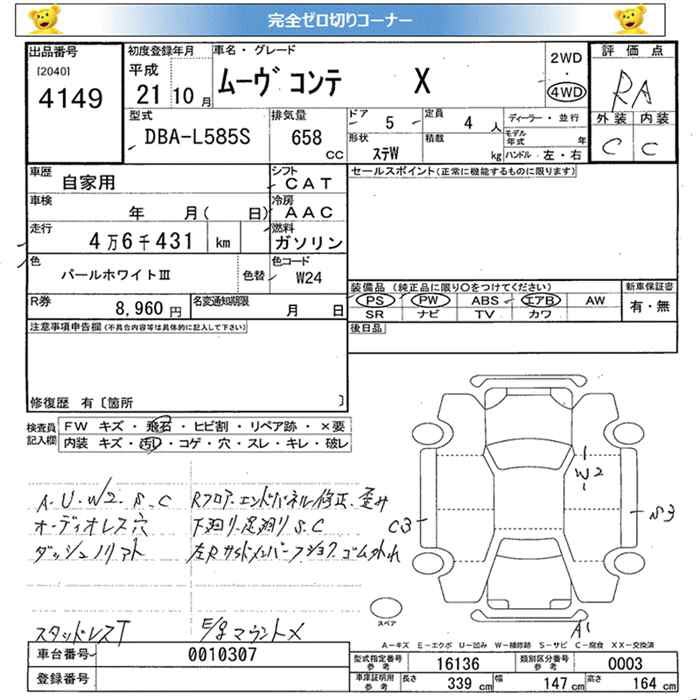 完全ゼロ切りコーナー
出品番号
[2040]
4149
初度登録年月
平成
21 10 月
車名・グレード
ムーヴ コンテ X
2WD
・
4WD
評価点
RA
外装 内装
C C
型式
DBA-L585S
排気量
658
CC
ドア
5
定員
4 人
形状
ステW
積載
kg
ディーラー・並行
モデル年式 年
ハンドル 左・右
車歴
自家用
シフト
CAT
車検
年 月( 日)
冷房
AAC
走行
4万6千431 km
燃料
ガソリン
色
パールホワイトⅢ
色替
色コード
W24
R券
8,960 円
名変通知期限
月 日
セールスポイント(正常に機能するものに限ります)
装備品 (純正品に限り○をつけてください)
PS PW ABS エアB AW
SR ナビ TV カワ
新車保証書
有・無
後日品
注意事項申告欄(不具合内容等は具体的に記入して下さい)
修復歴 有〔箇所 〕
検査員記入欄
FW キズ・飛石・ヒビ割・リペア跡・×要
内装 キズ・汚レ・コゲ・穴・スレ・キレ・破レ
A.U.W2.S.C
オーディオレス穴
ダッシュノリアト
Rフロア.エンドパネル修正.歪み
下廻り.足廻りS.C
左Rサイドメンバーフショク ゴム外れ
スタッドレスT
E/gマウント×
W2
C3
S3
A1
スペア
A-キズ E-エクボ U-凹み W-補修跡 S-サビ C-腐食 XX-交換済
車台番号
0010307
登録番号
型式指定番号
参考
16136
類別区分番号
参考
0003
車庫証明用
参考
長さ
339 cm
幅
147 cm
高さ
164 cm